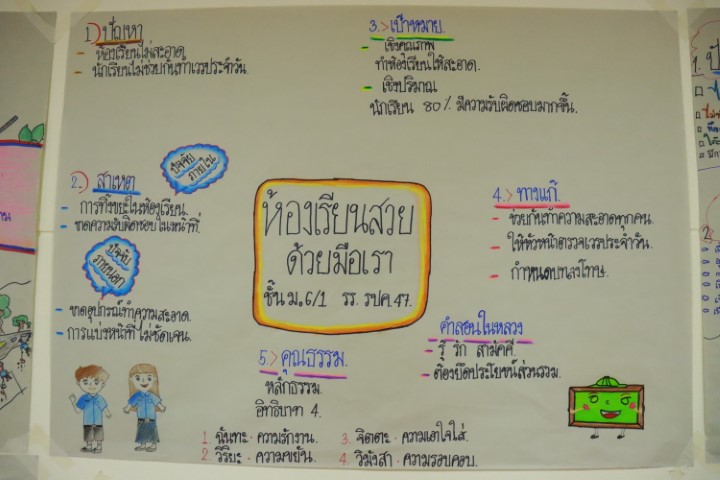 1) ปัญหา
- ห้องเรียนไม่สะอาด
- นักเรียนไม่ช่วยกันทำเวรประจำวัน
2.) สาเหตุ
ปัจจัย
ภายใน
- การทิ้งขยะในห้องเรียน
- ขาดความรับผิดชอบในหน้าที่.
ปัจจัย
ภายนอก
- ขาดอุปกรณ์ทำความสะอาด.
- การแบ่งหน้าที่ไม่ชัดเจน.
3.> เป้าหมาย.
- เชิงคุณภาพ
ทำห้องเรียนให้สะอาด.
- เชิงปริมาณ
นักเรียน 80% มีความรับผิดชอบมากขึ้น.
ห้องเรียนสวย
ด้วยมือเรา
ชั้น ม.6/1 รร. รปค.47.
4.> ทางแก้.
- ช่วยกันทำความสะอาดทุกคน.
- ให้หัวหน้าตรวจเวรประจำวัน.
- กำหนดบทลงโทษ.
คำสอนในหลวง
- รู้ รัก สามัคคี.
- ต้องยึดประโยชน์ส่วนรวม.
5.> คุณธรรม.
หลักธรรม.
อิทธิบาท 4.
1. ฉันทะ. ความรักงาน.
2 วิริยะ. ความขยัน.
3. จิตตะ. ความเอาใจใส่.
4. วิมังสา. ความรอบคอบ.